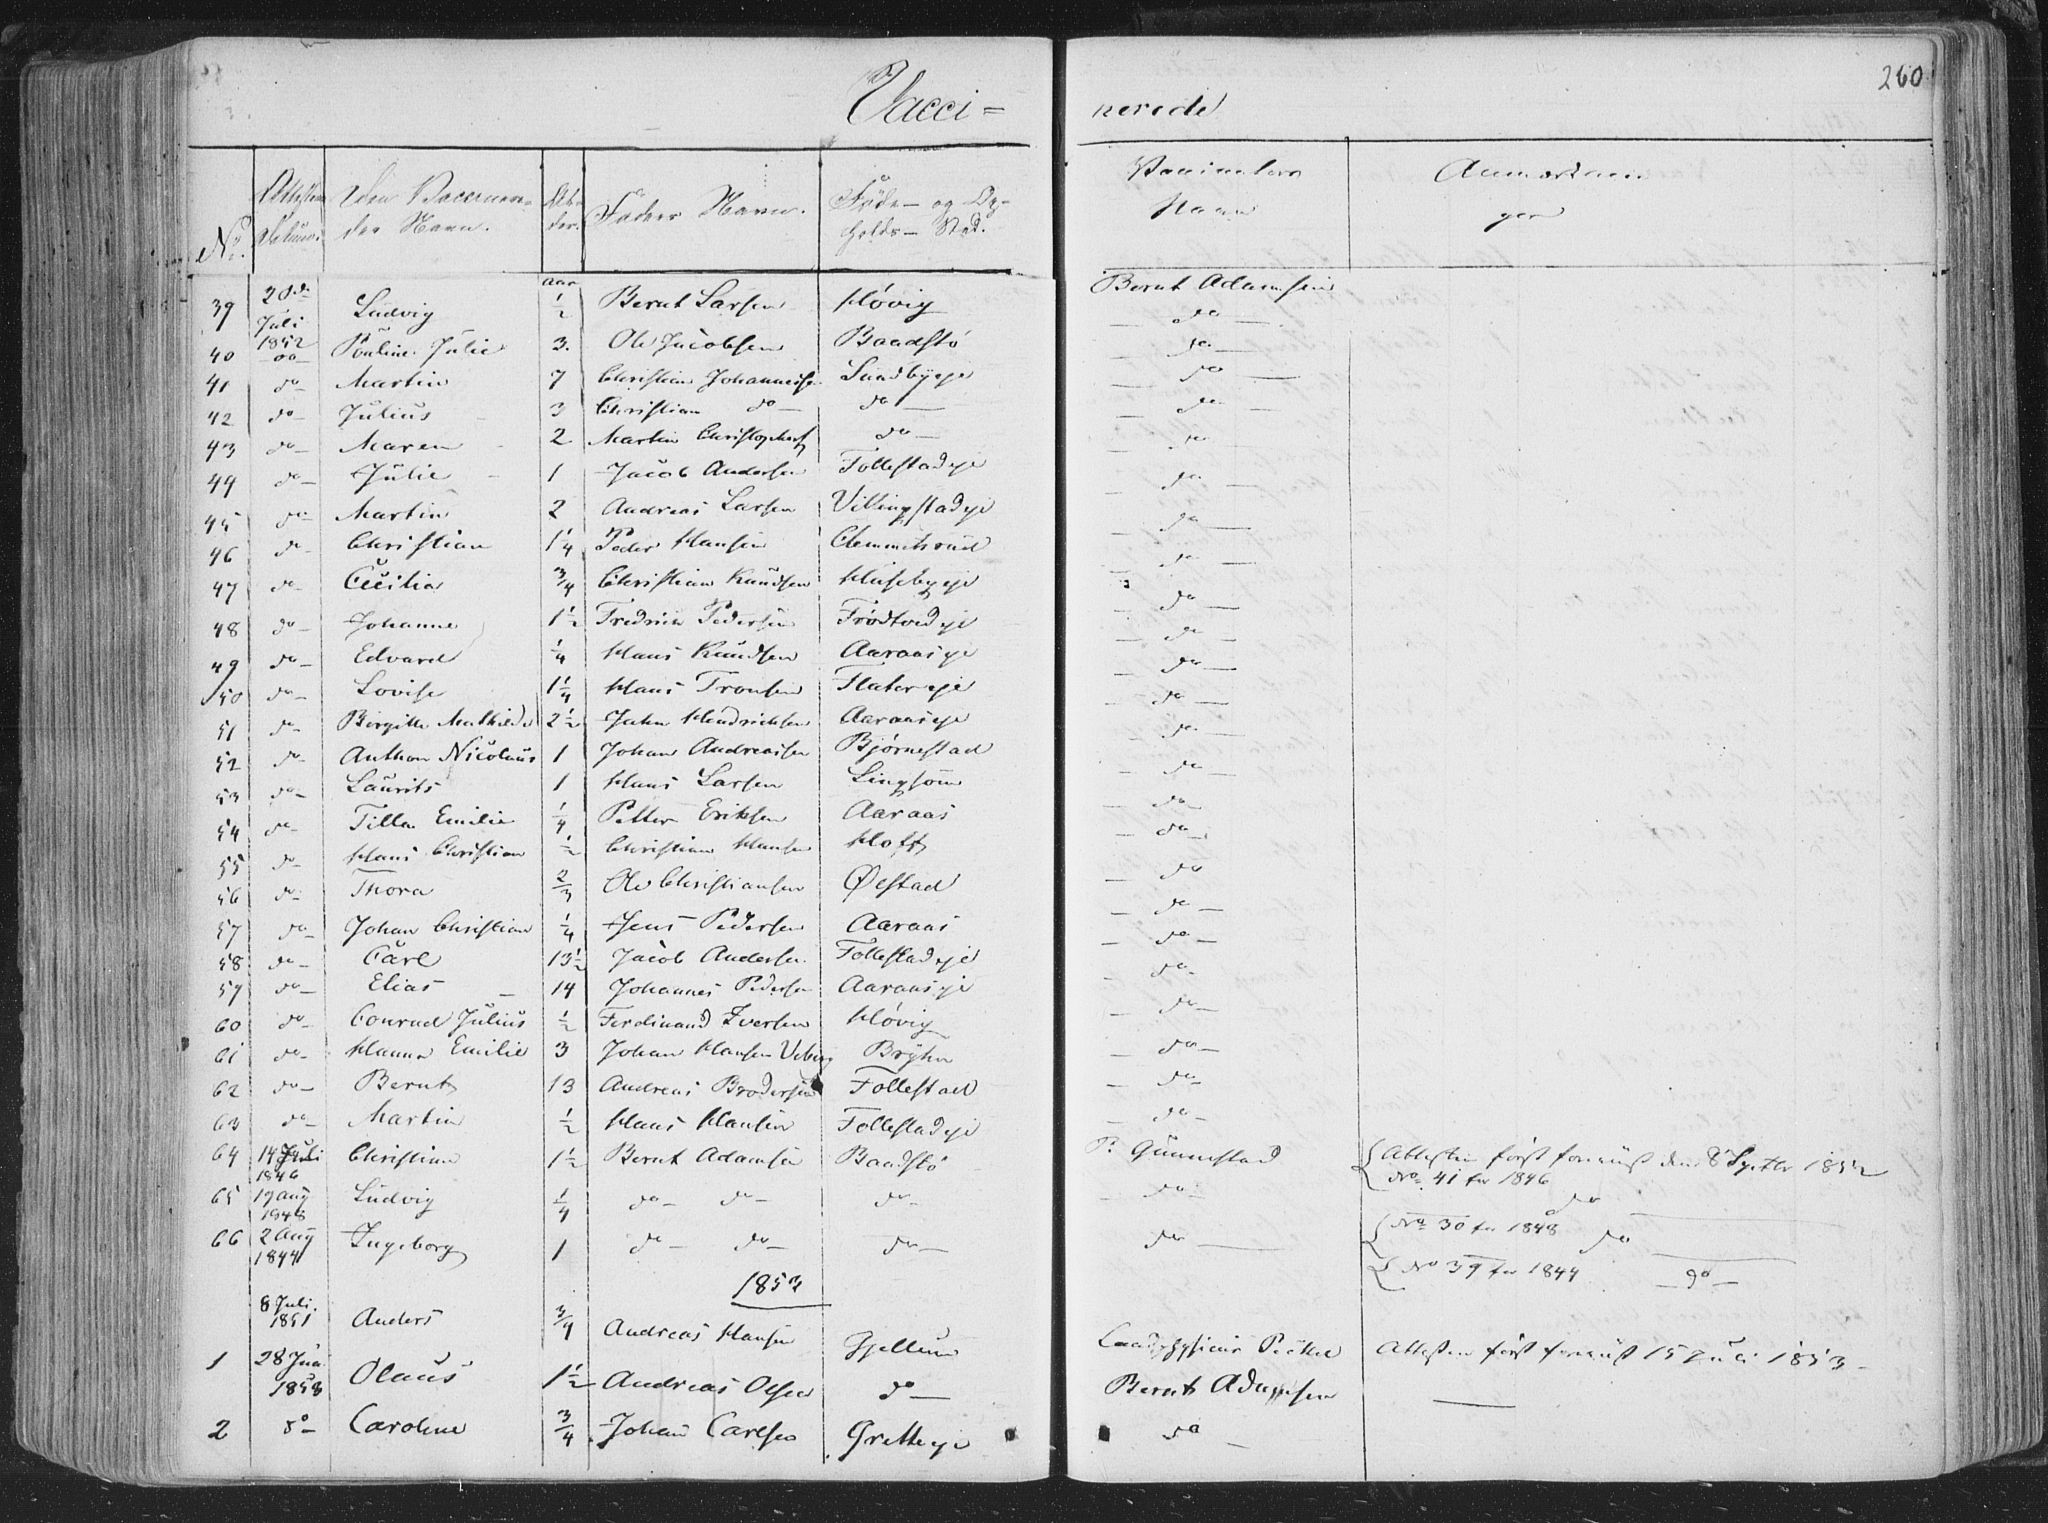 260
Vacci= nerede
No. Attestens Datum. Den Vaccinere- des Navn. Al- der. Faders Navn. Føde- og Op- holds- Sted. Vaccinators Navn Anmærknin- ger
Aar
39 20de Juli 1852 Ludvig 1/2 Bernt Larsen Høvig Bernt Adamsen
40 do- Pouline Julie 3. Ole Jacobsen Baadstø - do -
41 do- Martin 7 Christian Johannesse Sundbyeje - do -
42 do- Julius 3 Christian do- do- - do -
43 do- Maren 2 Martin Christophers do- - do -
44 do- Julie 1 Jacob Andersen Follestadeje - do -
45 do- Martin 2 Andreas Larsen Villingstadeje - do -
46 do- Christian 1 1/4 Peder Hansen Clemmetsrud - do -
47 do- Cecilia 3/4 Christian Knudsen Husebyeje - do -
48 do- Johanne 1 1/2 Fredrick Pedersen Frødtvedeje - do -
49 do- Edvard 1/4 Hans Knudsen Aaraaseje - do -
50 do- Lovise 1 1/4 Hans Tronsen Flatereje - do -
51 do- Birgitte Mathilde 2 1/2 John Hendricksen Aaraaseje - do -
52 do- Anthon Nicolaus 1 Johan Andreassen Bjørnestad - do -
53 do- Laurits 1 Hans Larsen Lingsom - do -
54 do- Tilla Emilie 1/4 Petter Eriksen Aaraas - do -
55 do- Hans Christian 1/2 Christian Hansen Hoff - do -
56 do- Thora 2/3 Ole Christiansen Øestad - do -
57 do- Johan Christian 1/4 Jens Pedersen Aaraas - do -
58 do- Carl 13 1/2 Jacob Andersen Follestadeje - do -
59 do- Elias 14 Johannes Pedersen Aaraaseje - do -
60 do- Conrad Julius 1/2 Ferdinand Iversen Høvig - do -
61 do- Hanna Emilie 3 Johan Hansen Brÿhn - do -
62 do- Bernt 13 Andreas Brodersen Follestad - do -
63 do- Martin 1/2 Hans Hansen Follestadeje - do -
64 14 Juli 1846 Christian 1 1/2 Bernt Adamsen Baadstø P. Gunnestad Attesten først foreviist den 8 Septbr 1852 No 41 for 1846
65 19 Aug 1848 Ludvig 1/4 do- do- do- - do - No 30 for 1848 do
66 2 Aug 1844 Ingeborg 1 do- do- do- do - No 39 for 1844 do
1853
8 Juli. 1851 Anders 3/4 Andreas Hansen Gjellum Landphysicus Attesten først foreviist 15 Juli 1853-
1 28 Juni 1853 Olaus 1 1/2 Andreas Olsen do- Bernt Adamsen
2 do- Caroline 3/4 Johan Carlsen Gretteeje do -